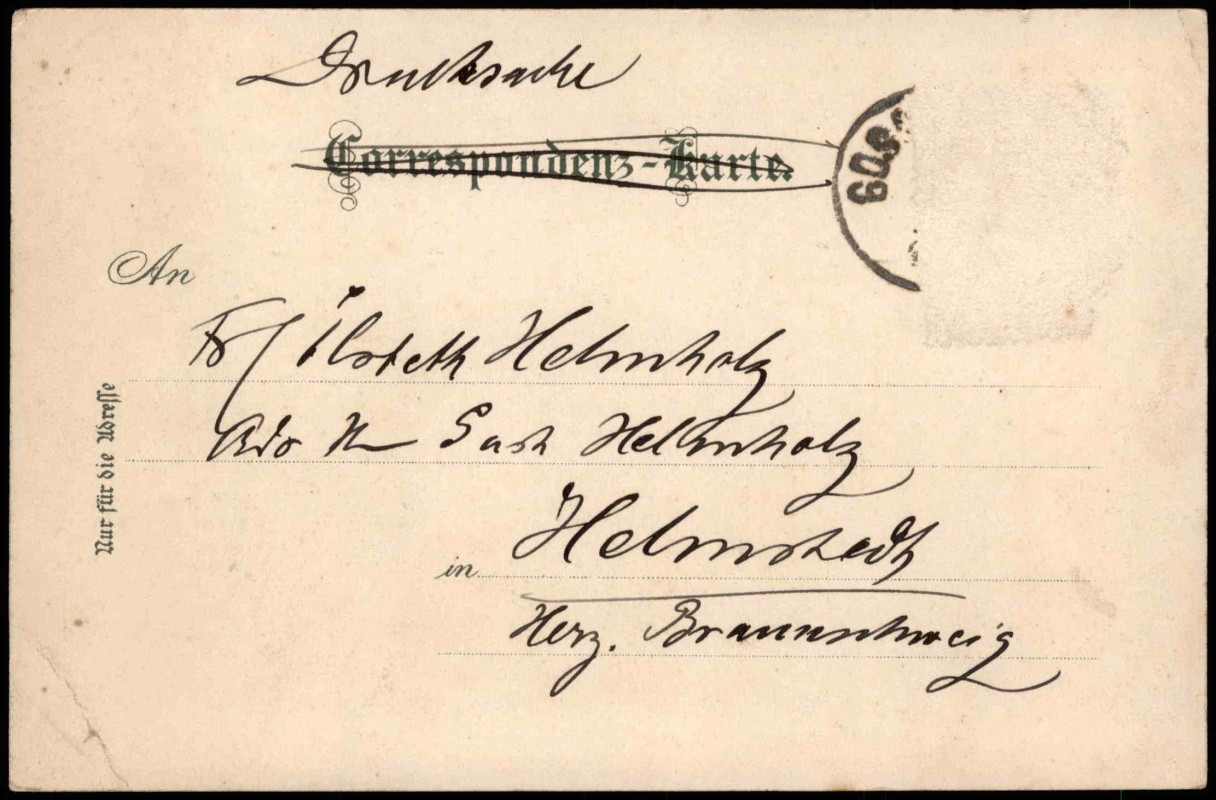 Drucksache
Correspondenz-Karte.
An
Frl Ilsbeth Helmholz
Adr Gust Helmholz
in Helmstedt
Herz. Braunschweig
Nur für die Adresse